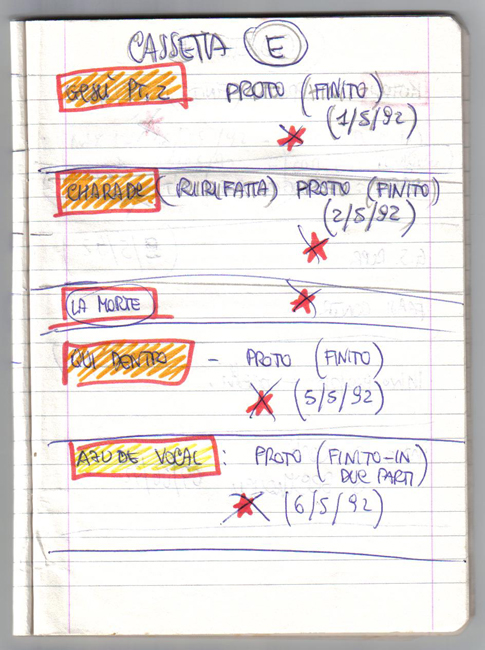 CASSETTA E
GESÙ PT. 2 PROTO (FINITO)
(1/5/92)
CHARADE (RURUFATTA) PROTO (FINITO)
(2/5/92)
LA MORTE
QUI DENTRO - PROTO (FINITO)
(5/5/92)
VOCAL: PROTO (FINITO-IN
DUE PARTI)
(6/5/92)